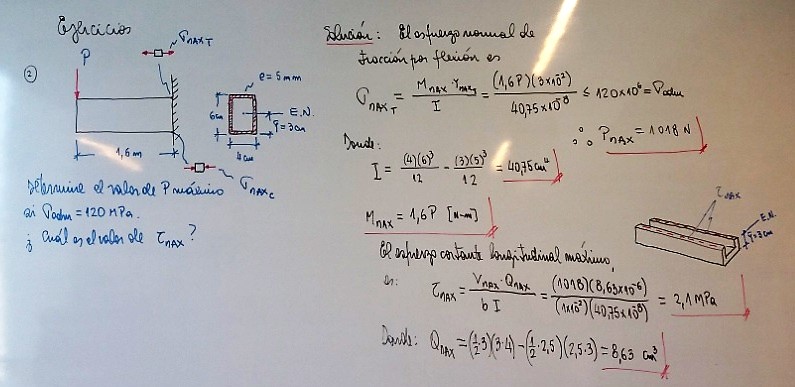 Ejercicios
②
σmaxT
P
e = 5 mm
6cm
E.N.
ȳ=3cm
4cm
1,6m
σmaxC
Determine el valor de P máximo
si σadm = 120 MPa.
¿ Cuál es el valor de τmax?
Solución: El esfuerzo normal de
tracción por flexión es
σmaxT = Mmax·Ymax / I = (1,6P)(3x10⁻²) / 40,75x10⁻⁸ ≤ 120x10⁶ = σadm
∴ Pmax = 1018 N
Donde:
I = (4)(6)³/12 - (3)(5)³/12 = 40,75 cm⁴
Mmax = 1,6P [N-m]
τmax
E.N.
ȳ=3cm
El esfuerzo cortante longitudinal máximo,
es: τmax = Vmax·Qmax / b I = (1018)(8,63x10⁻⁶) / (1x10⁻²)(40,75x10⁻⁸) = 2,1 MPa
Donde: Qmax = (½·3)(3·4) - (½·2,5)(2,5·3) = 8,63 cm³